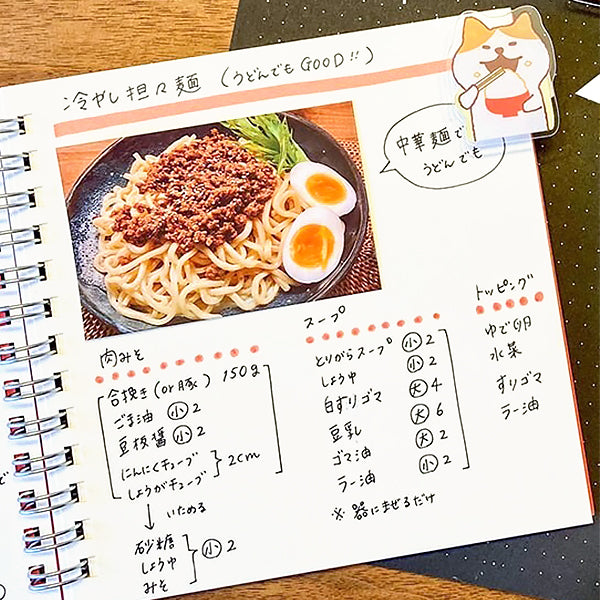 冷やし担々麺 (うどんでもGOOD!!)
中華麺でも
うどんでも
肉みそ
合挽き(or豚) 150g
ごま油 小2
豆板醤 小2
にんにくチューブ
しょうがチューブ
2cm
↓ いためる
砂糖
しょうゆ
みそ
小2
スープ
とりがらスープ 小2
しょうゆ 小2
白すりゴマ 大4
豆乳 大6
ゴマ油 大2
ラー油 小2
※器にまぜるだけ
トッピング
ゆで卵
水菜
すりゴマ
ラー油